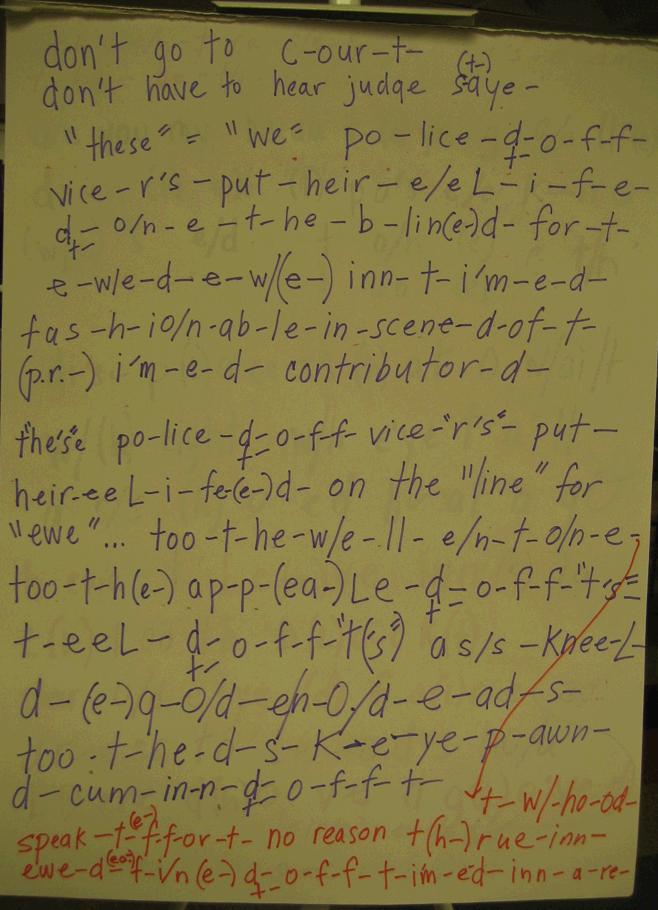 don't go to c-our-t-
(t-)
don't have to hear judge saye-
"these" = "we= po-lice-d-o-f-f-
vice-r's-put-heir-e/eL-i-f-e-
d- o/n-e-t-he-b-lin(e-)d- for-t-
e-w/e-d-e-w/(e-) inn-t-i'm-e-d-
fas-h-io/n-ab-le-in-scene-d-of-t-
(p.r.-) i'm-e-d- contributor-d-
"the's"e po-lice-d-o-f-f- vice-"r's"- put-
heir-eeL-i-fe-(e-)d- on the "line" for
"ewe"... too-t-he-w/e-ll- e/n-t-o/n-e-
too-t-h(e-) ap-p-(ea-)Le-d-o-f-f-"t's=
t-eeL- d-o-f-f-"t(s") as/s-Knee-L-
d-(e-)q-O/d-eh-O/d-e-ad-s-
too-t-he-d-s-K-e-ye-p-awn-
d-cum-in-n-d-o-f-f-t-
t-w/-ho-od-
speak-t-(e-)f-f-or-t- no reason t(h-)rue-inn-
ewe-d-(eo-)f-i/n(e-) d-o-f-f-t-im-ed-inn-a-re-